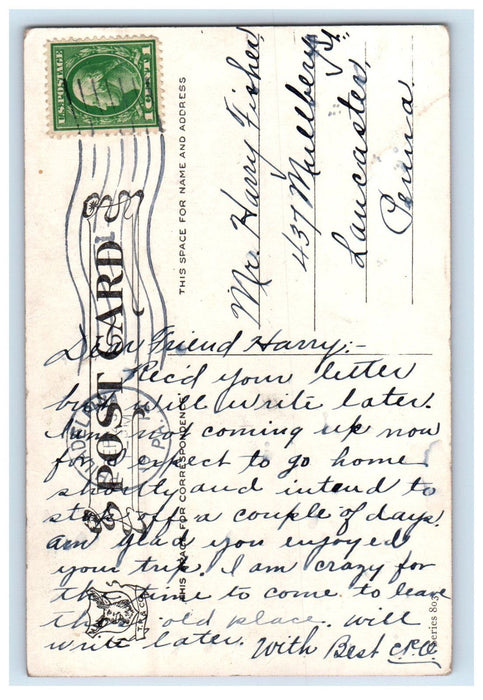 U.S. POSTAGE
1 CENT 1
POST CARD
THIS SPACE FOR NAME AND ADDRESS
Mr. Harry Fisher,
437 Mullberry St.
Lancaster,
Penna.
Dear Friend Harry:-
Rec'd your letter
but will write later.
Am not coming up now
for expect to go home
shortly and intend to
stop off a couple of days.
am glad you enjoyed
your trip. I am crazy for
the time to come to leave
this old place. will
write later. With Best
THIS SPACE FOR CORRESPONDENCE
PA.
Series 803